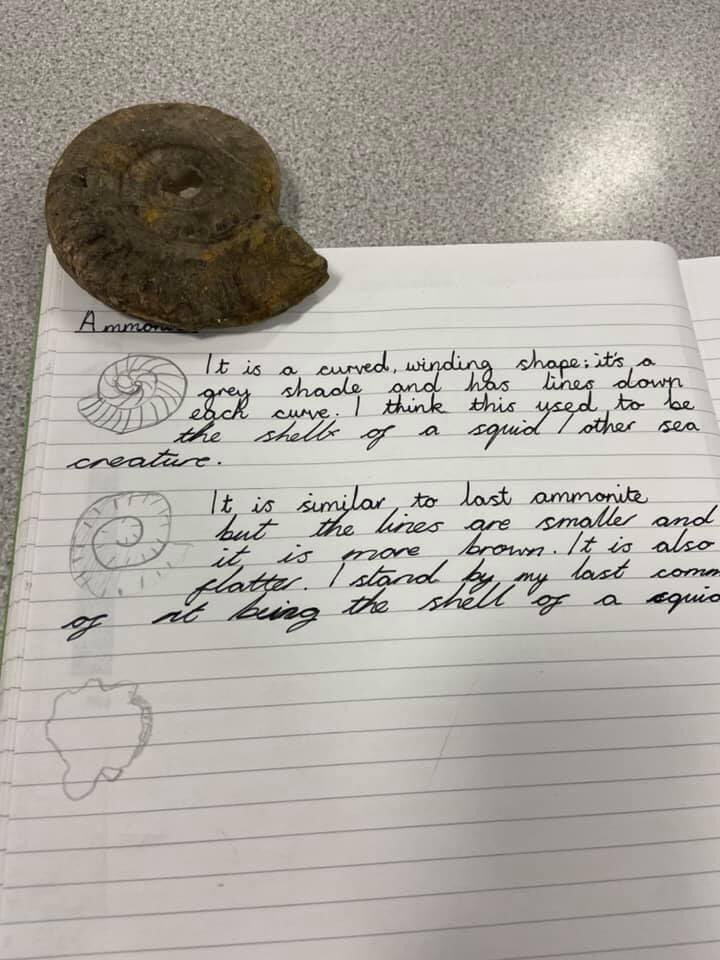 Ammoni
It is a curved, winding shape; it's a
grey shade and has lines down
each curve. I think this used to be
the shells of a squid / other sea
creature.
It is similar to last ammonite
but the lines are smaller and
it is more brown. It is also
flatter. I stand by my last comm
of it being the shell of a squid